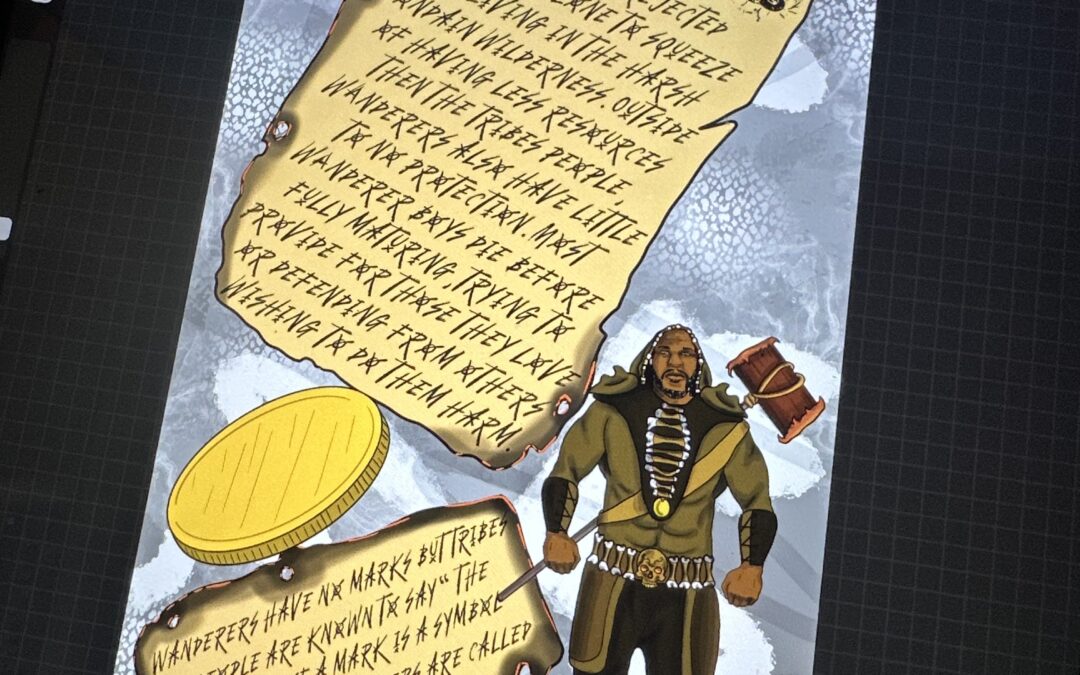 REJECTED
TO SQUEEZE
LIVING IN THE HARSH
WILDERNESS. OUTSIDE
OF HAVING LESS RESOURCES
THEN THE TRIBES PEOPLE,
WANDERERS ALSO HAVE LITTLE
TO NO PROTECTION. MOST
WANDERER BOYS DIE BEFORE
FULLY MATURING, TRYING TO
PROVIDE FOR THOSE THEY LOVE
OR DEFENDING FROM OTHERS
WISHING TO DO THEM HARM.
WANDERERS HAVE NO MARKS BUT TRIBES
ARE KNOWN TO SAY "THE
A MARK IS A SYMBOL
ARE CALLED